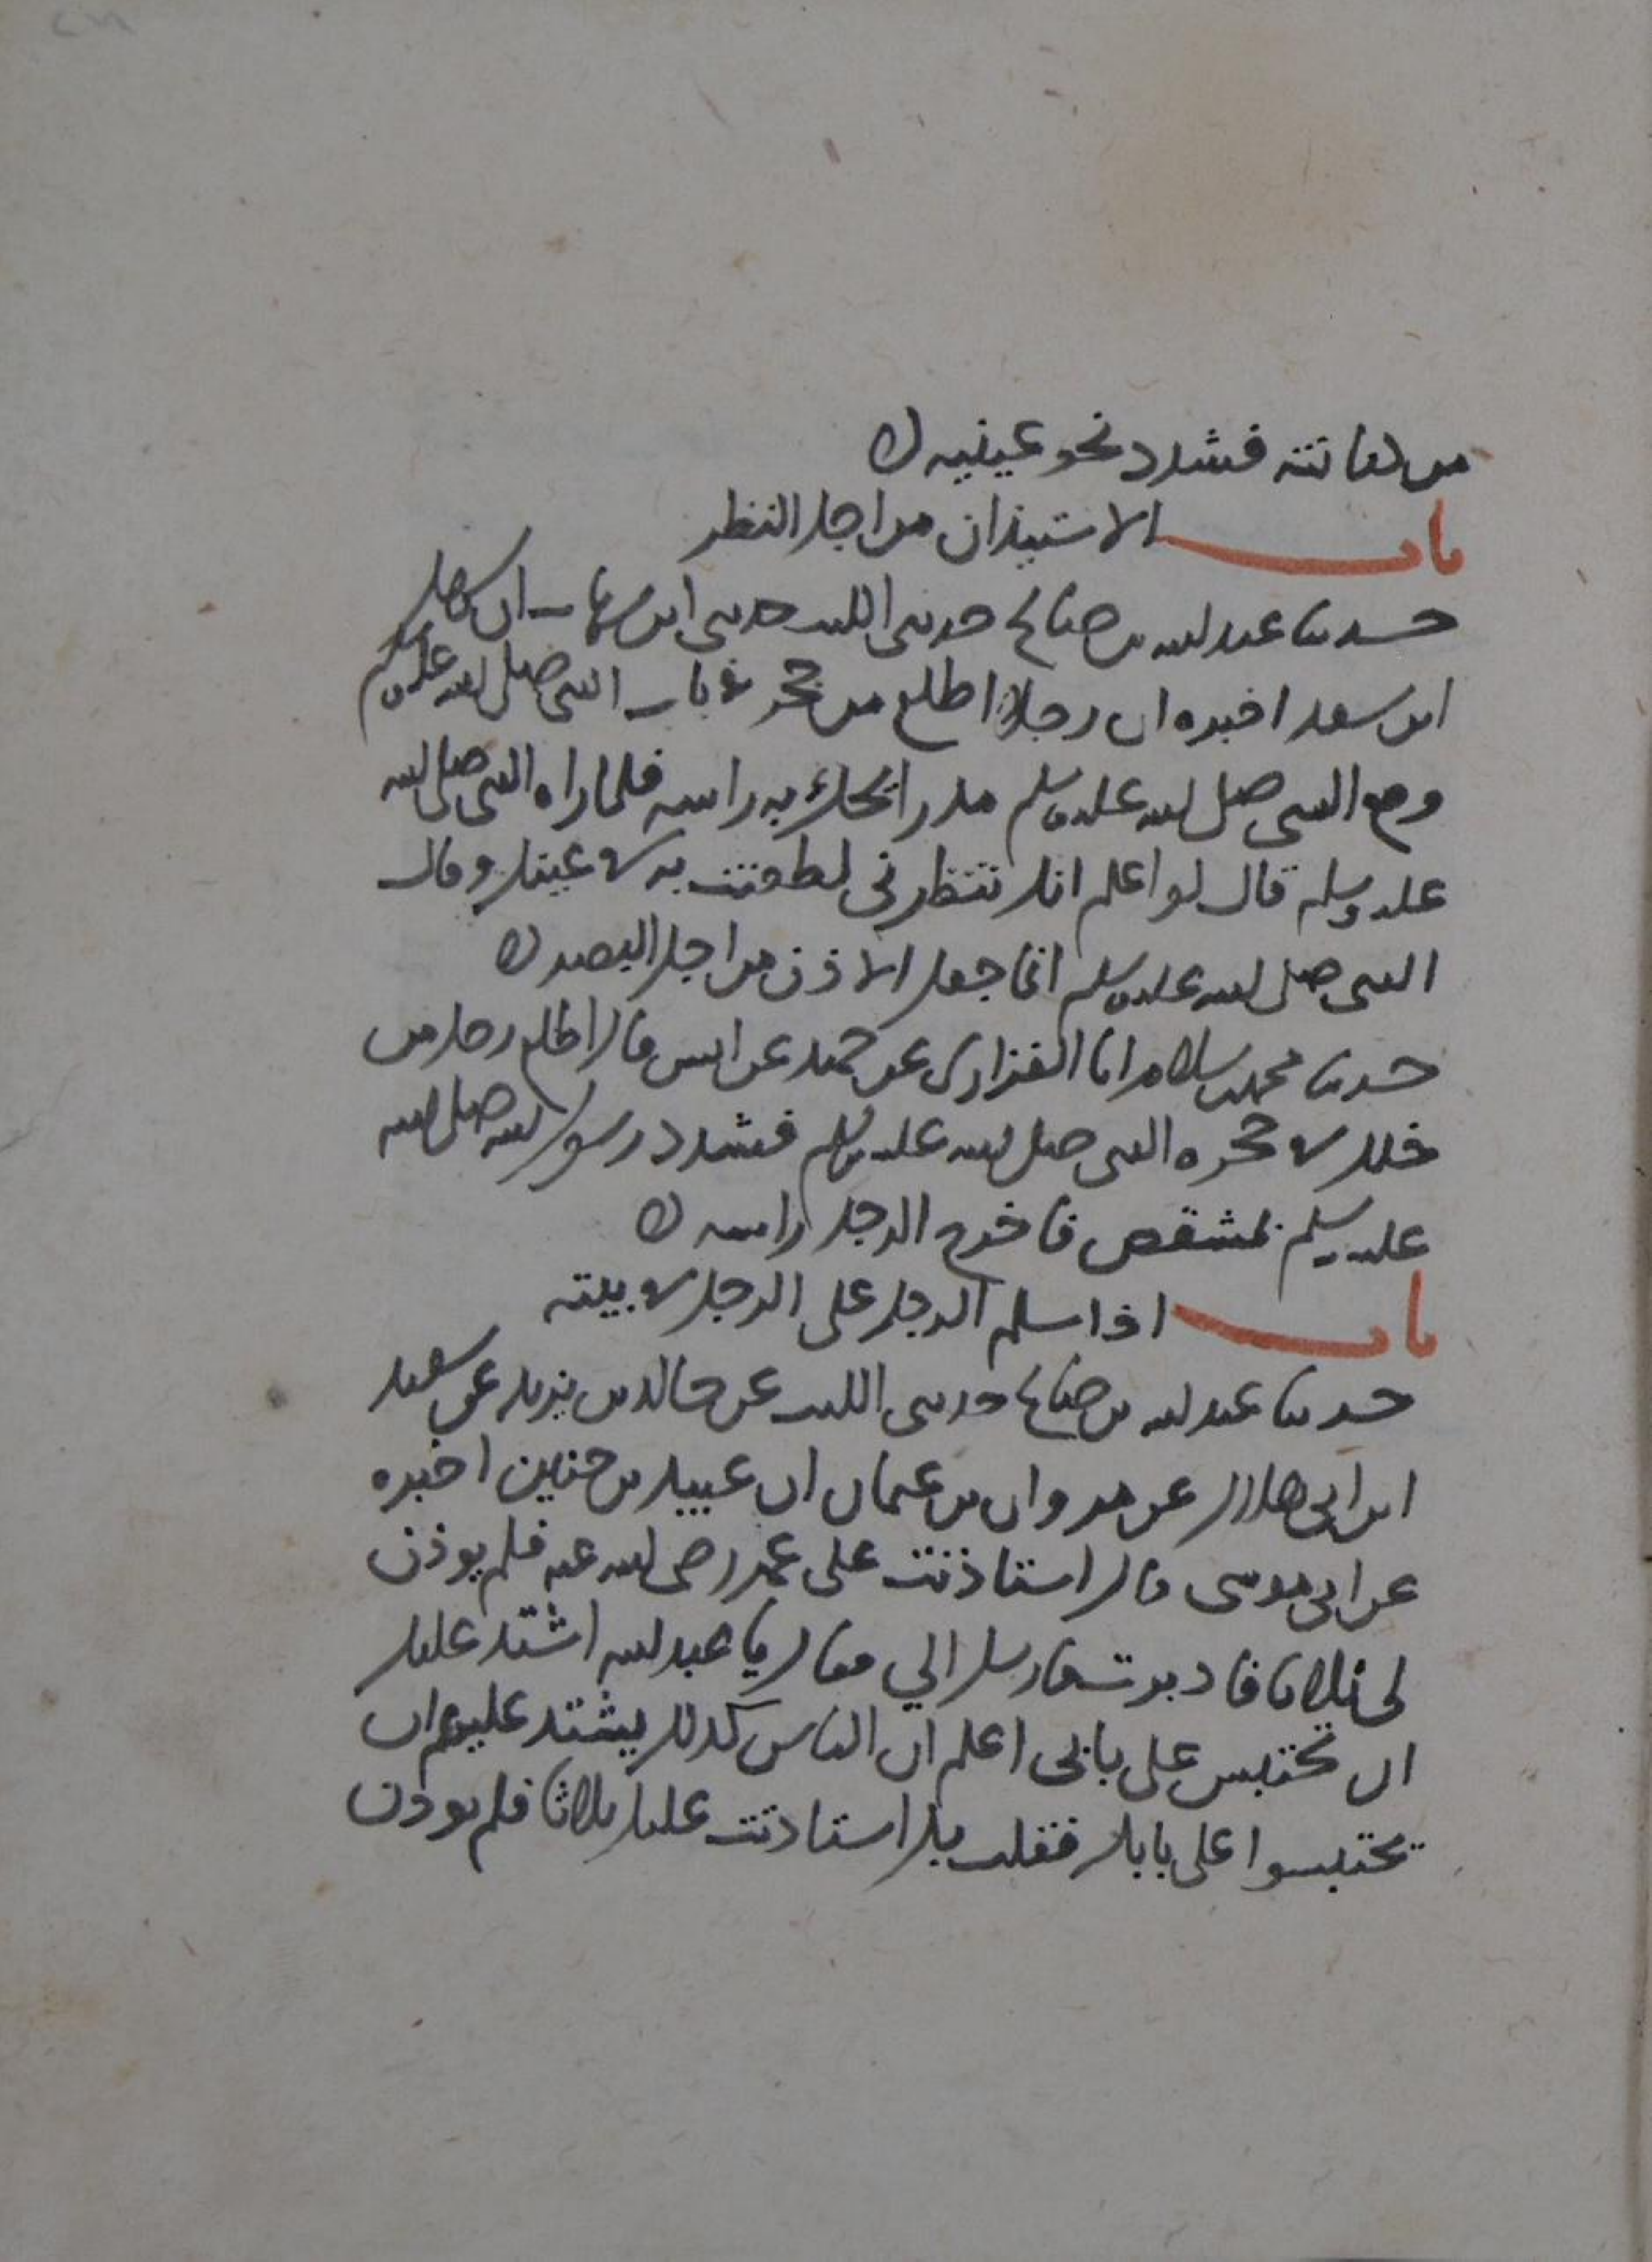 من كنانته فسدد نحو عينيه
باب الاستيذان من اجل النظر
حدثنا عبد الله بن صالح حدثني الليث حدثني ابن شهاب ان سهل
ابن سعد اخبره ان رجلا اطلع من جحر في باب النبي صلى الله عليه وسلم
ومع النبي صلى الله عليه وسلم مدرا يحك به راسه فلما راه النبي صلى الله
عليه وسلم قال لو اعلم انك تنتظرني لطعنت به في عينك وقال
النبي صلى الله عليه وسلم انما جعل الاذن من اجل البصر
حدثنا محمد بن سلام انا الفزاري عن حميد عن انس قال اطلع رجل من
خلل في حجرة النبي صلى الله عليه وسلم فسدد رسول الله صلى الله
عليه وسلم بمشقص فاخرج الرجل راسه
باب اذا سلم الرجل على الرجل في بيته
حدثنا عبد الله بن صالح حدثني الليث عن خالد بن يزيد عن سعيد
ابن ابي هلال عن مروان بن عثمان ان عبيد بن حنين اخبره
عن ابي موسى قال استاذنت على عمر رضي الله عنه فلم يوذن
لي ثلاثا فادبرت فارسل الي فقال يا عبد الله اشتد عليك
ان تحتبس على بابي اعلم ان الناس كذلك يشتد عليهم ان
يحتبسوا على بابك فقلت بل استاذنت عليك ثلاثا فلم يوذن